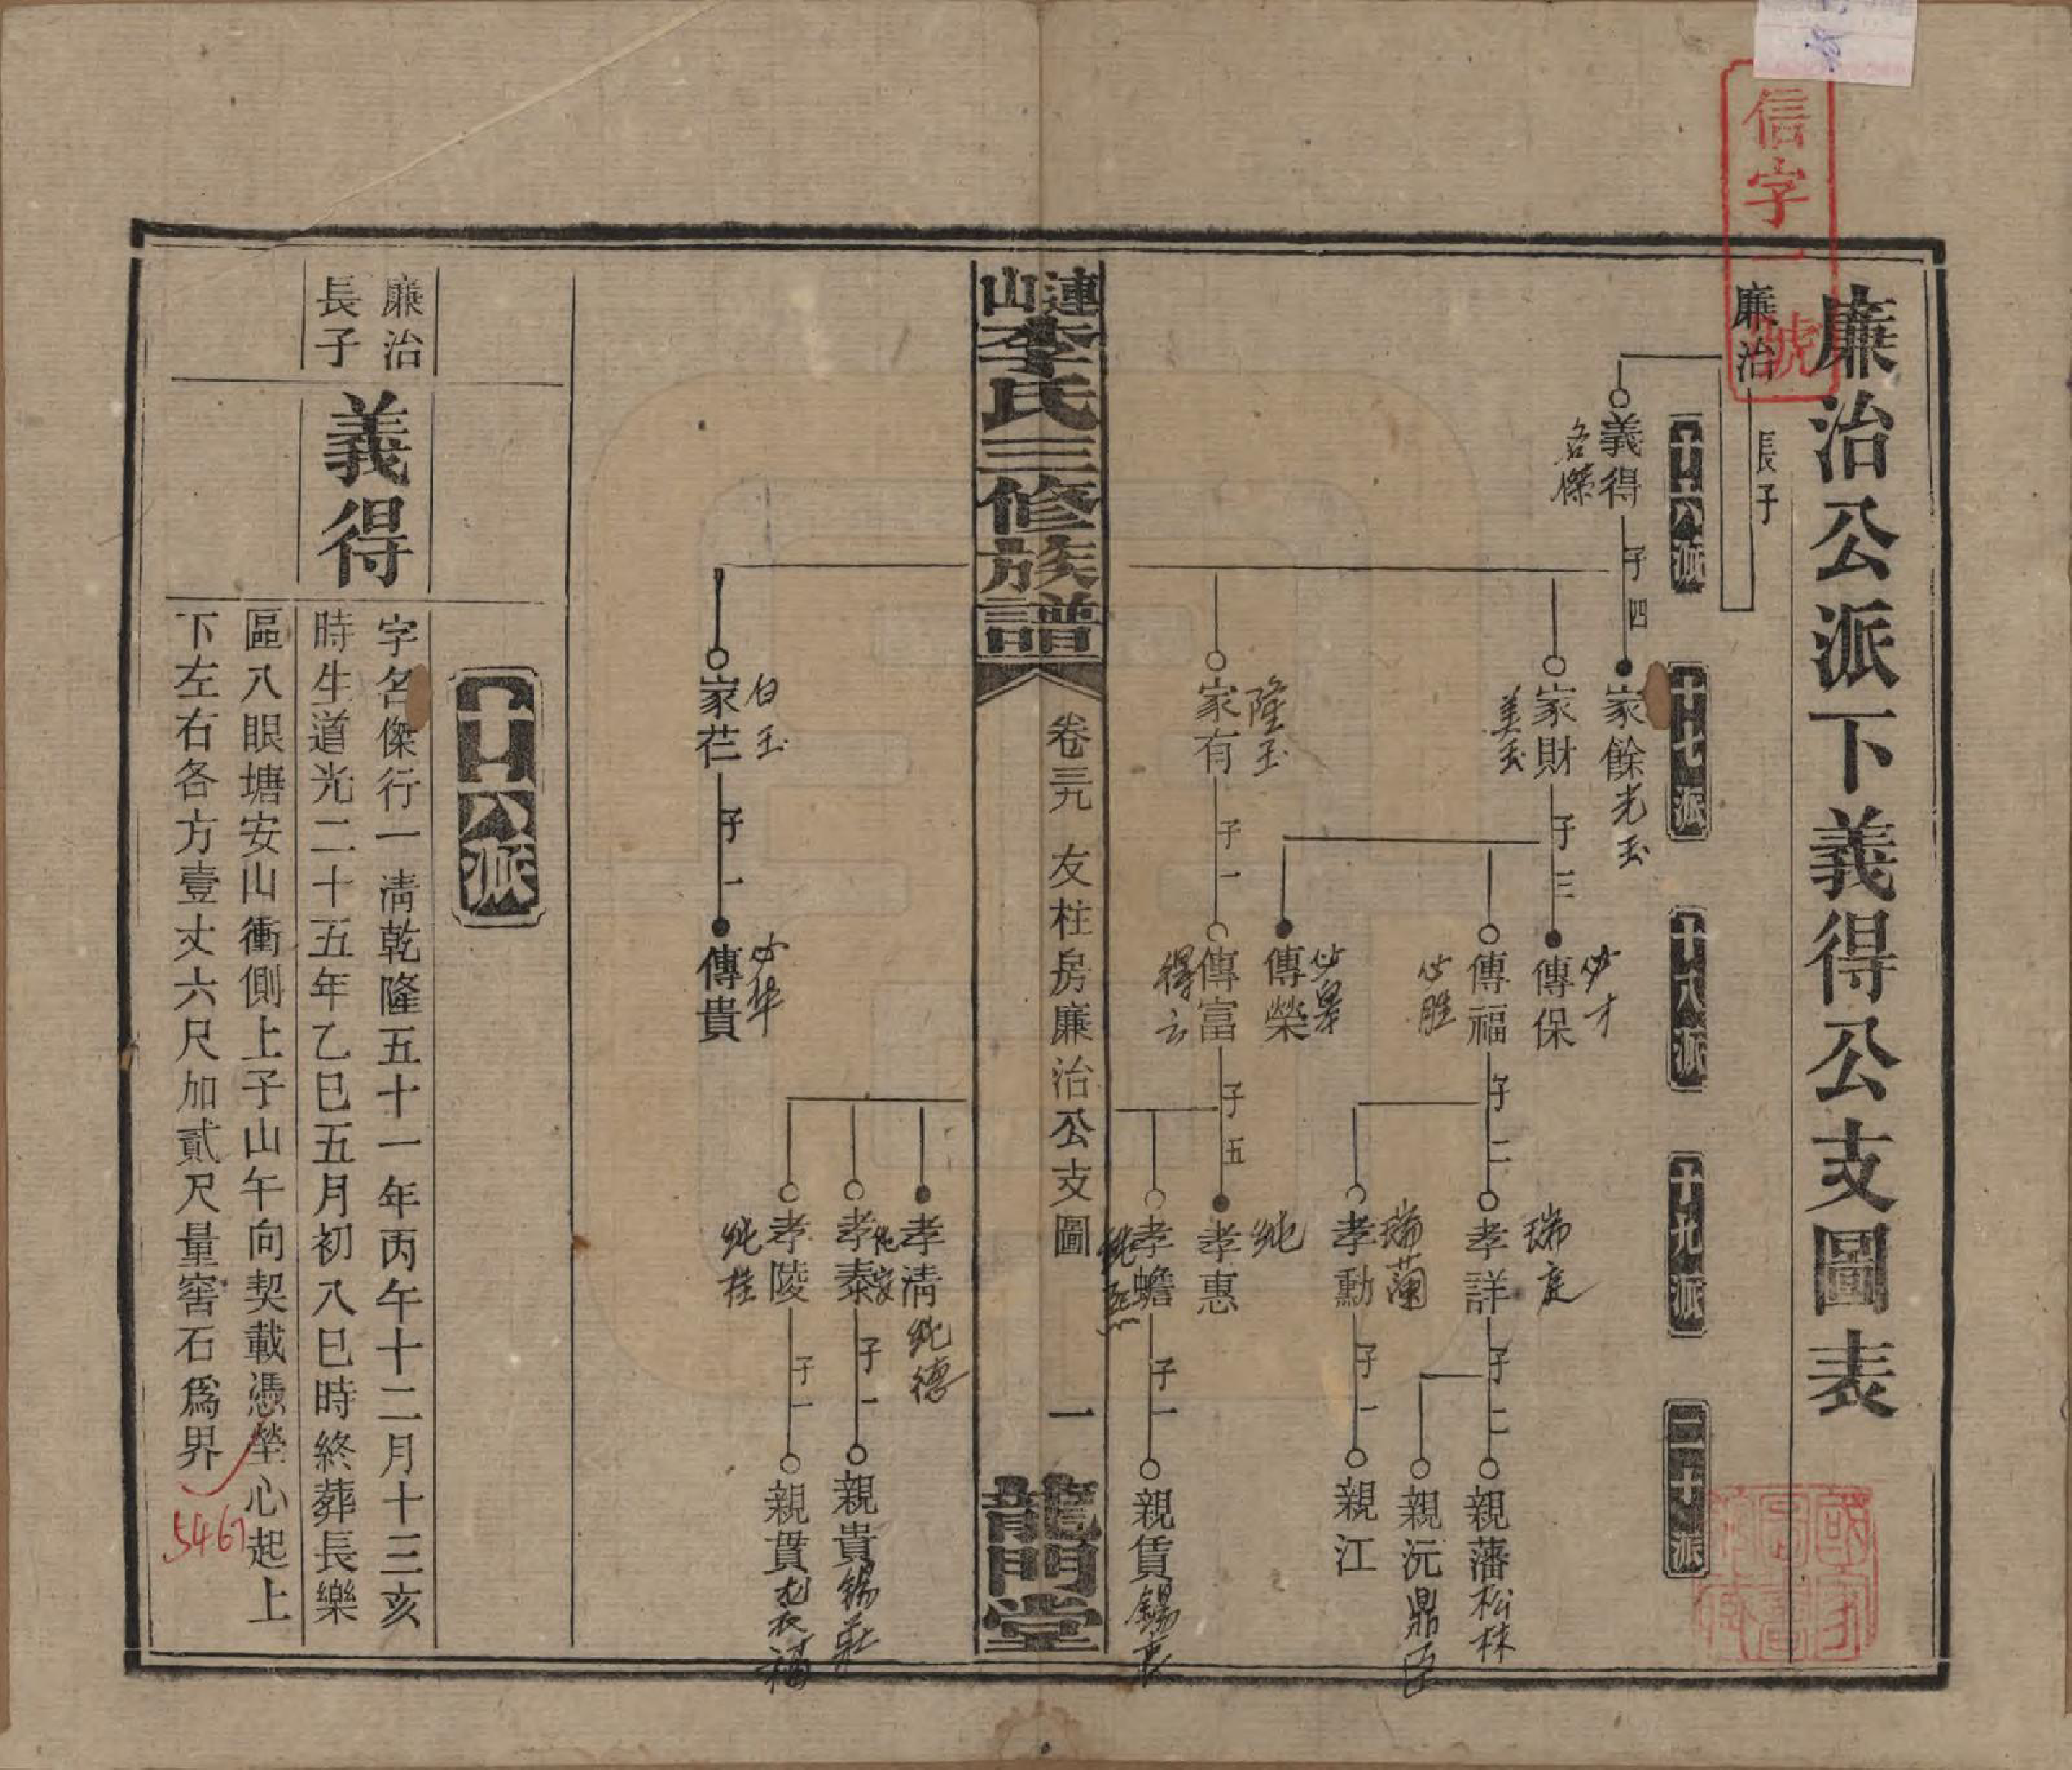 信字一號
廉治公派下義得公支圖表
廉治
長子
十六派
十七派
十八派
十九派
二十派
義得
名傑
子四
家餘
光玉
家財
美玉
子三
家有
隆玉
子一
傳保
必才
傳福
必胜
子二
傳榮
傳富
得云
子五
孝詳
瑞庭
子二
孝勳
瑞蘭
子一
孝惠
純
孝蟾
子一
親藩
松林
親沅
鼎臣
親江
親賃
錫衷
連山李氏三修族譜
卷三九
友柱房廉治公支圖
一
龍門堂
家芢
白玉
子一
傳貴
必華
孝清
純德
孝泰
子一
孝陵
純桂
子一
親貴
錫莊
親貫
十六派
廉治
長子
義得
字名傑行一清乾隆五十一年丙午十二月十三亥
時生道光二十五年乙巳五月初八巳時終葬長樂
區八眼塘安山衝側上子山午向契載憑塋心起上
下左右各方壹丈六尺加貳尺量窖石爲界
5461